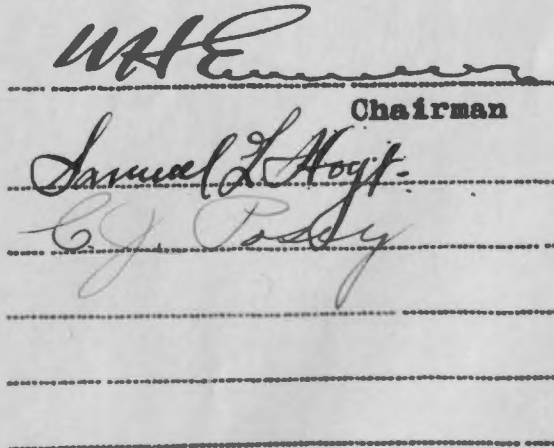 W H Emmons
Chairman
Samuel L Hoyt.
C. J. Posey